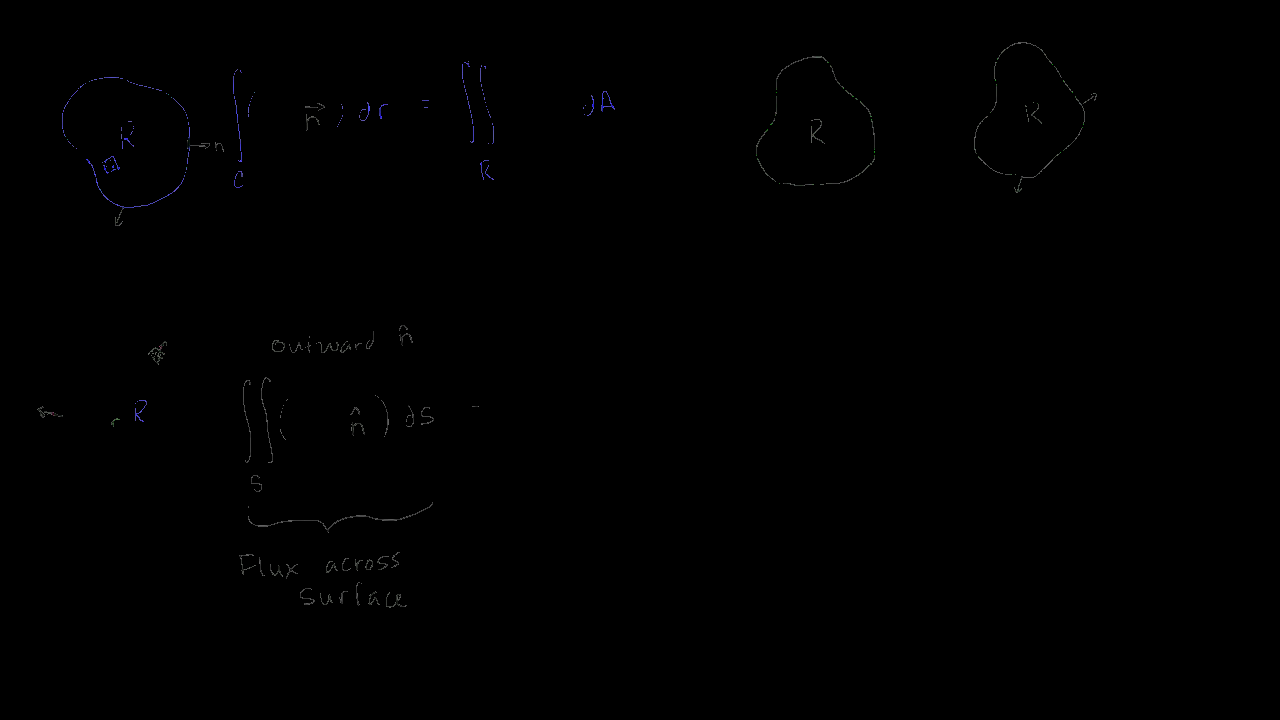 R n ∫ C ( n⃗ ) dr = ∫∫ R dA R R
outward n̂
R ∫∫ S ( n̂ ) dS =
Flux across
surface